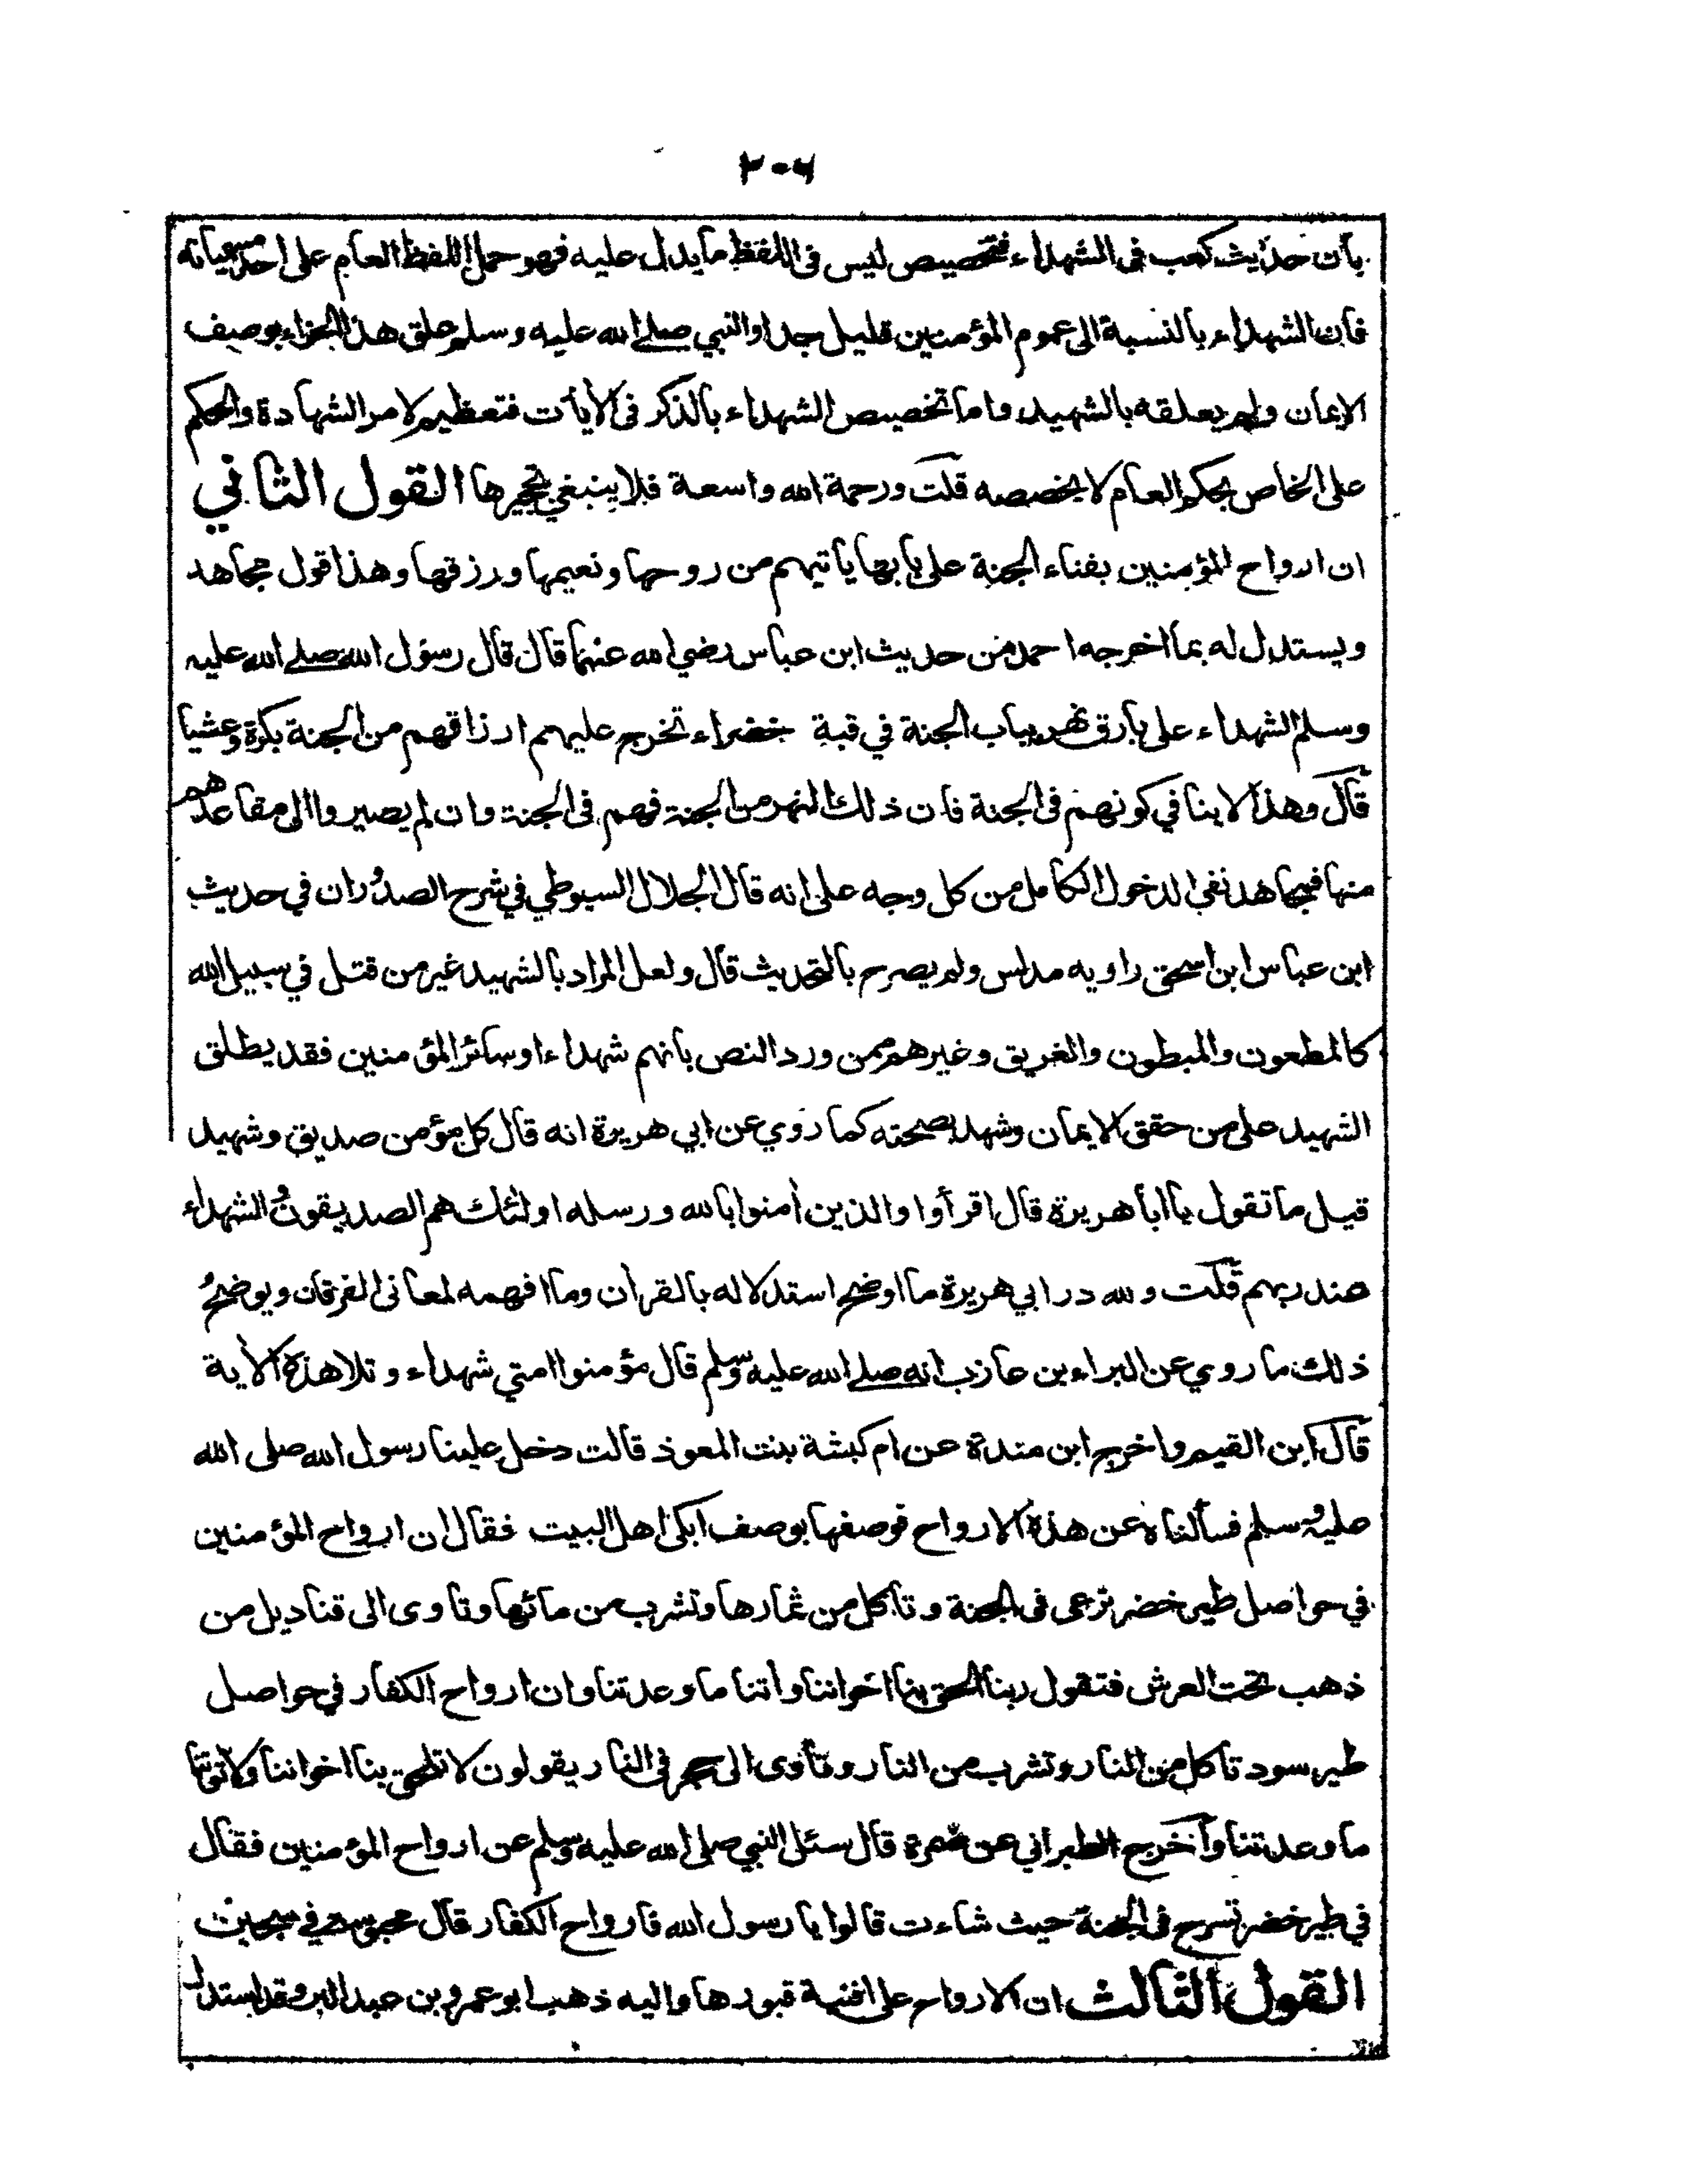 ٢٠٦
بأن حديث كعب فى الشهداء فتخصيص ليس فى اللفظ ما يدل عليه فهو حمل اللفظ العام على احد مسمياته
فان الشهداء بالنسبة الى عموم المؤمنين قليل جدا والنبي صلى الله عليه وسلم علق هذا الجزاء بوصف
الايمان ولم يعلقه بالشهيد واما تخصيص الشهداء بالذكر فى الأيات فتعظيم لامر الشهادة والحكم
على الخاص بحكم العام لا يخصصه قلت ورحمة الله واسعة فلا ينبغي تحجيرها القول الثاني
ان ارواح المؤمنين بفناء الجنة على بابها يأتيهم من روحها ونعيمها ورزقها وهذا قول مجاهد
ويستدل له بما اخرجه احمد من حديث ابن عباس رضي الله عنهما قال قال رسول الله صلى الله عليه
وسلم الشهداء على بارق نهر بباب الجنة في قبة خضراء تخرج عليهم ارزاقهم من الجنة بكرة وعشيا
قال وهذا لا ينافي كونهم فى الجنة فان ذلك النهر من الجنة فهم فى الجنة وان لم يصيروا الى مقاعدهم
منها فمجاهد نفى الدخول الكامل من كل وجه على انه قال الجلال السيوطي في شرح الصدور ان في حديث
ابن عباس ابن اسحق راويه مدلس ولم يصرح بالتحديث قال ولعل المراد بالشهيد غير من قتل في سبيل الله
كالمطعون والمبطون والغريق وغيرهم ممن ورد النص بانهم شهداء او سائر المؤمنين فقد يطلق
الشهيد على من حقق الايمان وشهد بصحته كما روي عن ابي هريرة انه قال كل مؤمن صديق وشهيد
قيل ما تقول يا ابا هريرة قال اقرأوا والذين أمنوا بالله ورسله اولئك هم الصديقون والشهداء
عند ربهم قلت ولله در ابي هريرة ما اوضح استدلاله بالقرأن وما افهمه لمعانى الفرقان ويوضح
ذلك ما روي عن البراء بن عازب انه صلى الله عليه وسلم قال مؤمنوا امتي شهداء وتلا هذه الأية
قال ابن القيم واخرج ابن مندة عن ام كبشة بنت المعوذ قالت دخل علينا رسول الله صلى الله
عليه وسلم فسألناه عن هذه الارواح فوصفها بوصف ابكى اهل البيت فقال ان ارواح المؤمنين
في حواصل طير خضر ترعى فى الجنة وتأكل من ثمارها وتشرب من مائها وتأوى الى قناديل من
ذهب تحت العرش فتقول ربنا الحق بنا اخواننا وأتنا ما وعدتنا وان ارواح الكفار في حواصل
طير سود تأكل من النار وتشرب من النار وتأوى الى جحر فى النار يقولون لا تلحق بنا اخواننا ولا تؤتنا
ما وعدتنا وأخرج الطبراني عن ضمرة قال سئل النبي صلى الله عليه وسلم عن ارواح المؤمنين فقال
في طير خضر تسرح فى الجنة حيث شاءت قالوا يا رسول الله فارواح الكفار قال محبوسة في سجين
القول الثالث ان الارواح على افنية قبورها واليه ذهب ابو عمرو بن عبد البر وقد استدل